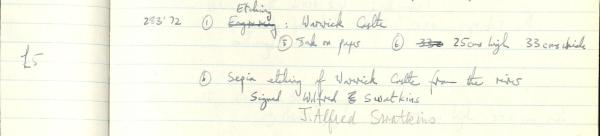 Etching
283'72 ① Engraving : Warwick Castle
£5
⑤ Ink on paper ⑥ 33c 25cms high 33cms wide
⑧ Sepia etching of Warwick Castle from the river
Signed Wilfred E Swatkins
J. Alfred Swatkins